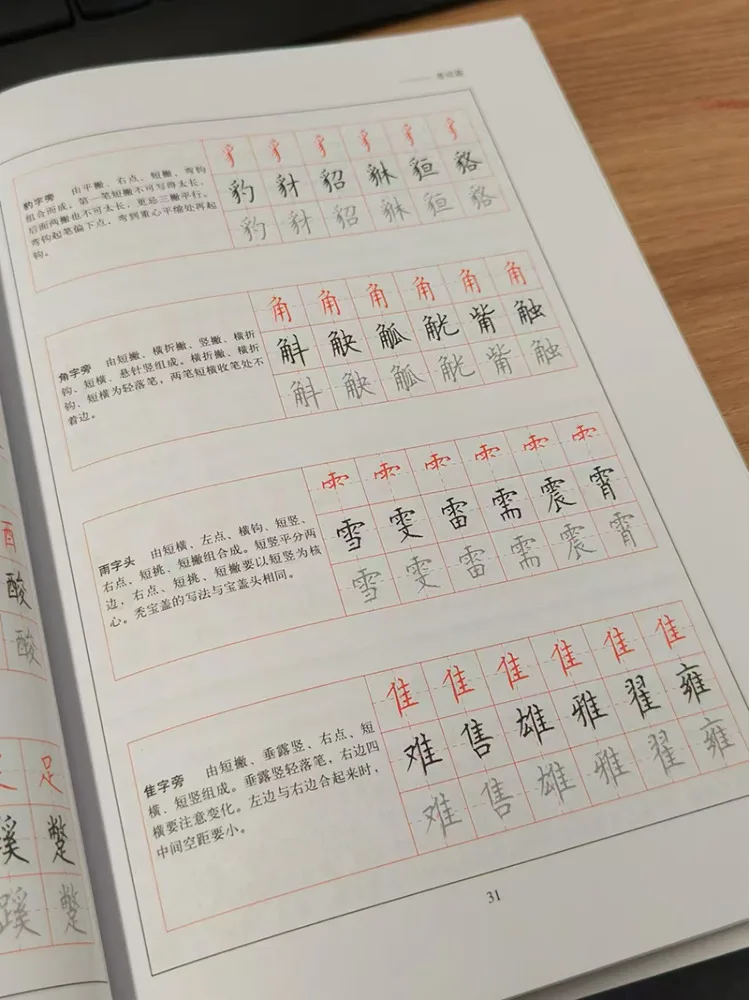 豸 豸 豸 豸 豸 豸
豹字旁 由平撇、右点、短撇、弯钩
组合而成。第一笔短撇不可写得太长,
后面两撇也不可太长,更忌三撇平行。
弯钩起笔偏下点,弯到重心平稳处再起
钩。
豹 豺 貂 貅 貆 貉
豹 豺 貂 貅 貆 貉
角 角 角 角 角 角
角字旁 由短撇、横折撇、竖撇、横折
钩、短横、悬针竖组成。横折撇、横折
钩、短横为轻落笔,两笔短横收笔处不
着边。
斛 觖 觚 觥 觜 触
斛 觖 觚 觥 觜 触
雨字头 由短横、左点、横钩、短竖、
右点、短挑、短撇组合成。短竖平分两
边,右点、短挑、短撇要以短竖为核
心。秃宝盖的写法与宝盖头相同。
雪 雯 雷 需 震 霄
雪 雯 雷 需 震 霄
隹 隹 隹 隹 隹 隹
隹字旁 由短撇、垂露竖、右点、短
横、短竖组成。垂露竖轻落笔,右边四
横要注意变化。左边与右边合起来时,
中间空距要小。
难 售 雄 雅 翟 雍
难 售 雄 雅 翟 雍
31
酸
酸
足
蹊 蹩
蹊 蹩